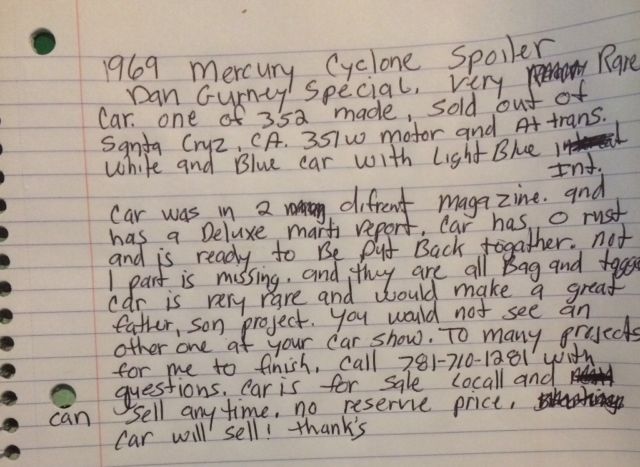 1969 Mercury Cyclone Spoiler
Dan Gurney Special, very Rare
Car. one of 352 made, sold out of
Santa Cruz, CA. 351w motor and At trans.
White and Blue car with Light Blue
Int.
Car was in 2 difrent magazine. and
has a Deluxe marti report. Car has 0 rust
and is ready to Be put Back togather. not
1 part is missing. and they are all Bag and tagged
car is very rare and would make a great
father, son project. you would not see an
other one at your car show. To many projects
for me to finish. call 781-710-1281 with
questions. Car is for sale Locall and
can sell anytime. no reserve price.
Car will sell! thank's